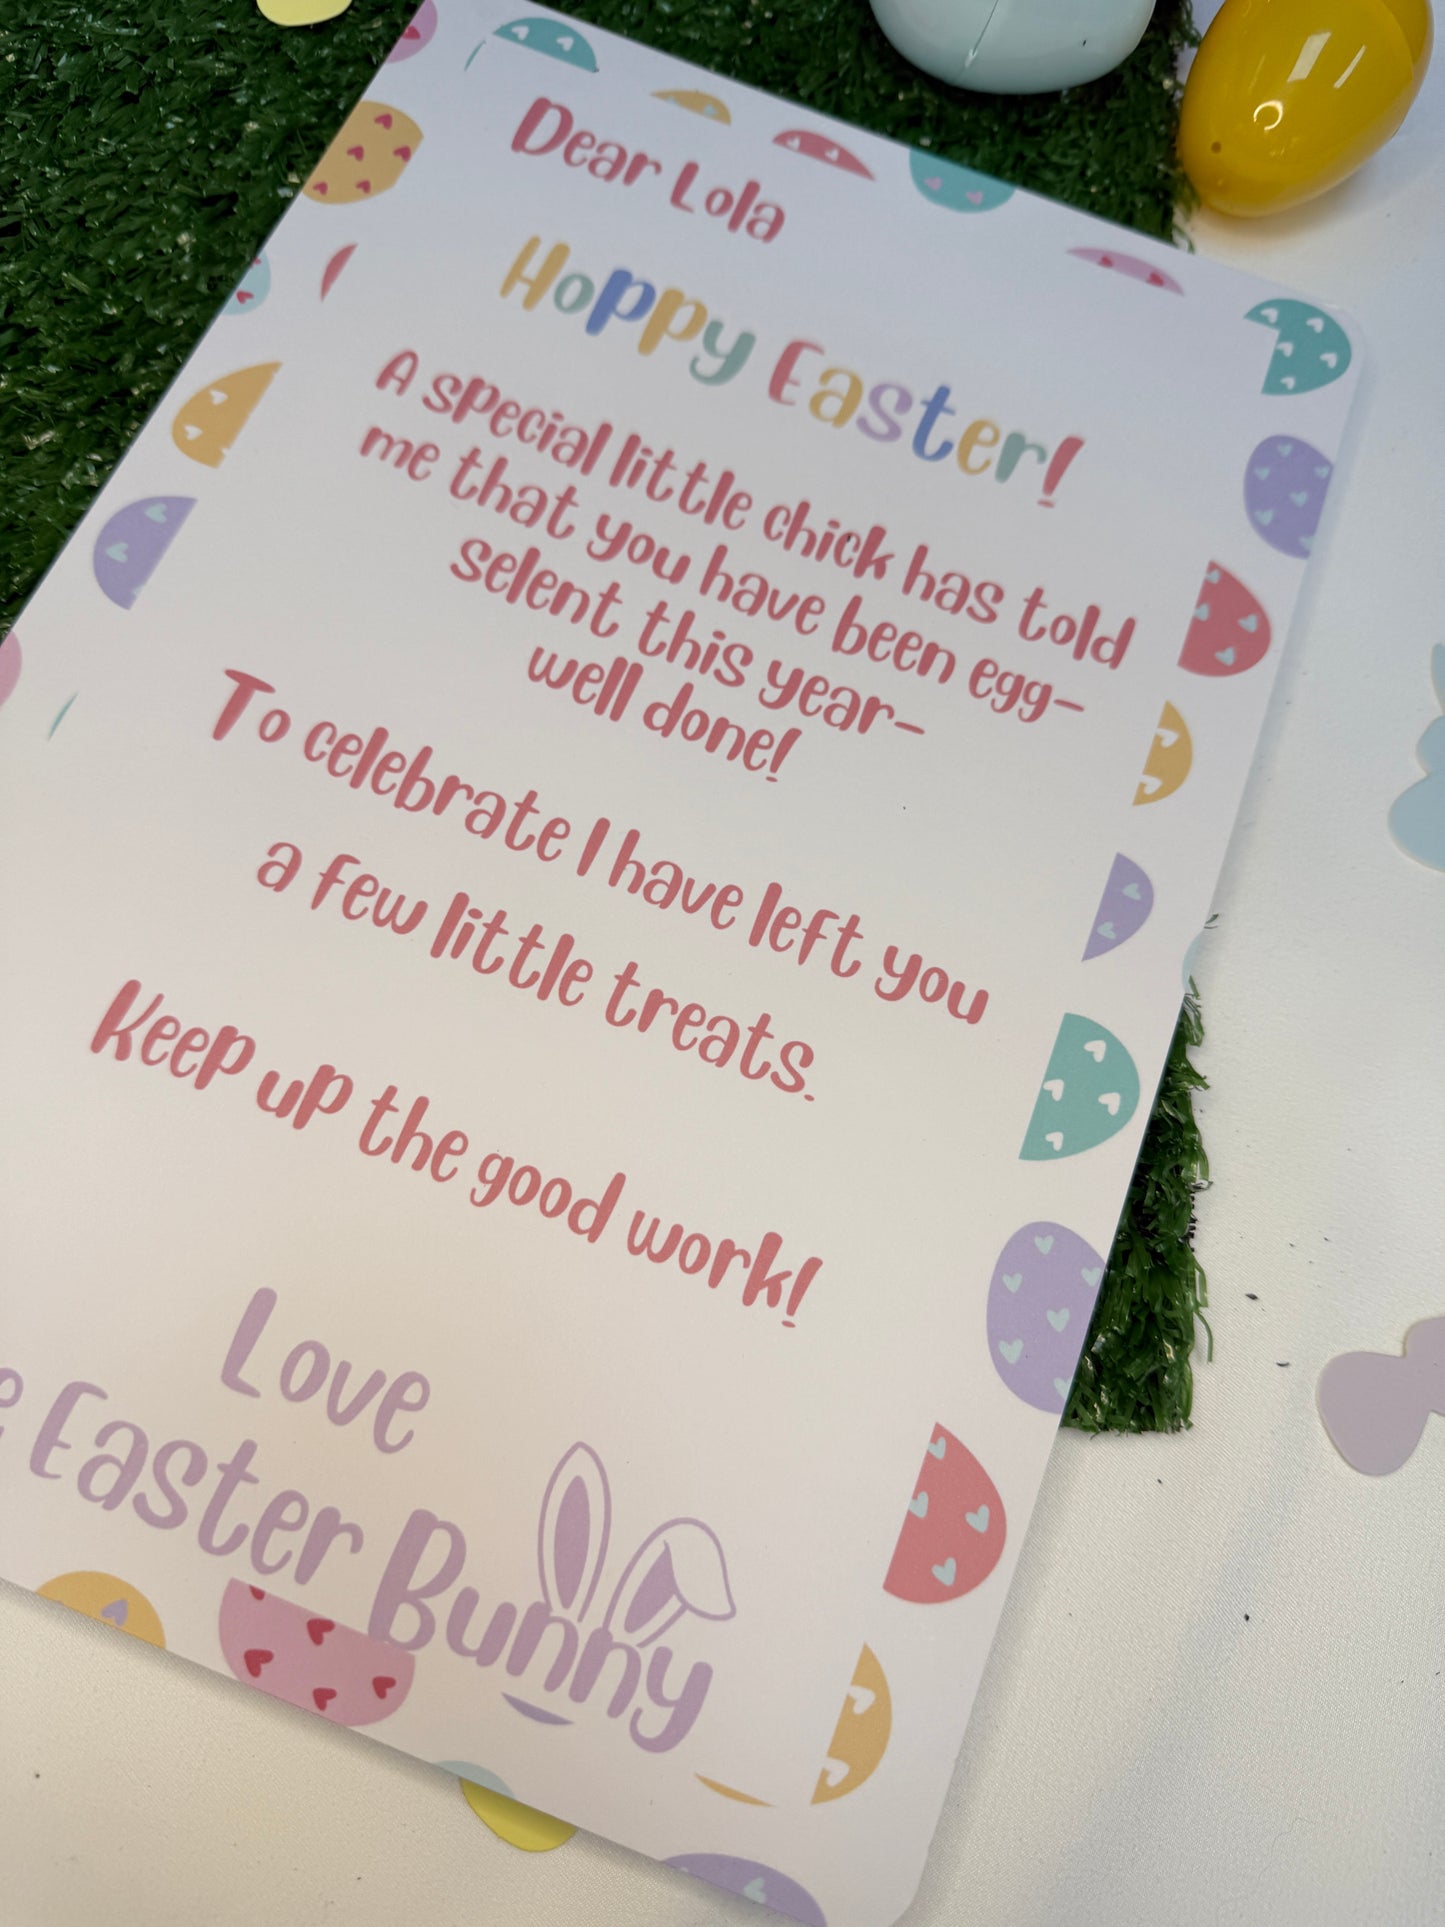 Dear Lola
Hoppy Easter!
A special little chick has told
me that you have been egg-
selent this year-
well done!
To celebrate I have left you
a few little treats.
Keep up the good work!
Love
e Easter Bunny